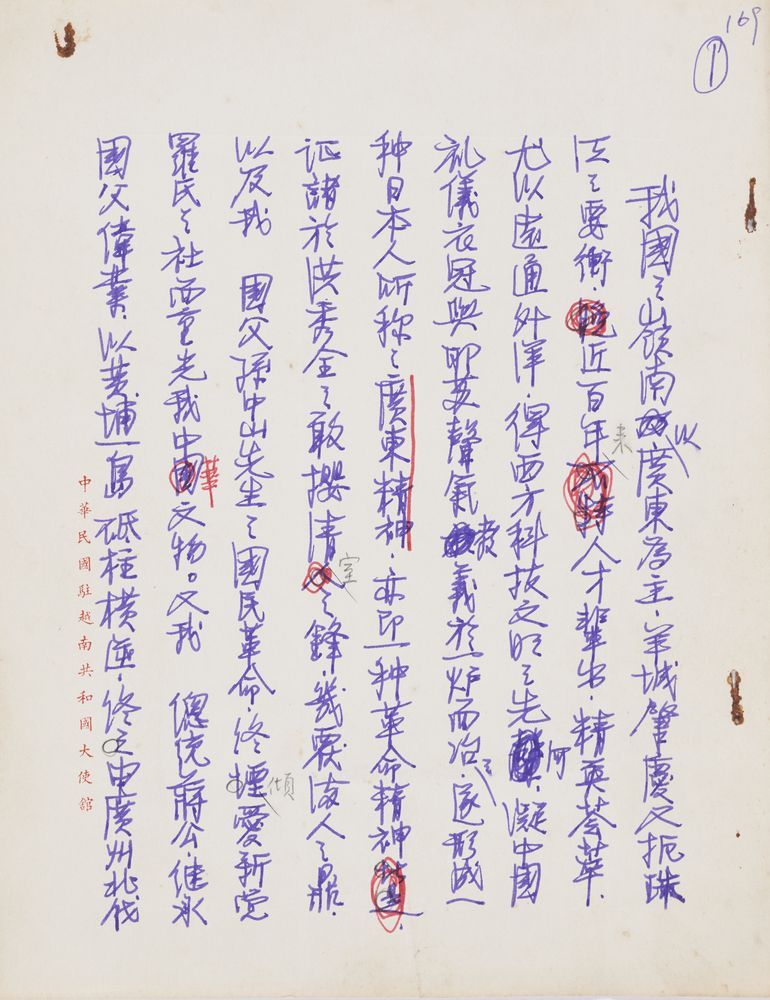 169
1
我國之山嶺南以廣東為主,羊城肇慶又扼珠
江之要衝,近百年來人才輩出,精英薈萃,
尤以遠通外洋,得西方科技文明之先河,凝中國
礼儀衣冠與歐美聲氣教義於一炉而冶之,遂形成一
种日本人所称之廣東精神,亦即一种革命精神,
証諸於洪秀全之敢攖清室之鋒,幾覆滿人之鼎,
以及我 國父孫中山先生之國民革命,終傾愛新覚
羅氏之社而重光我中華文物。又我 總統蔣公,継承
國父偉業,以黄埔一島砥柱橫逆,終由廣州北伐
中華民國駐越南共和國大使館